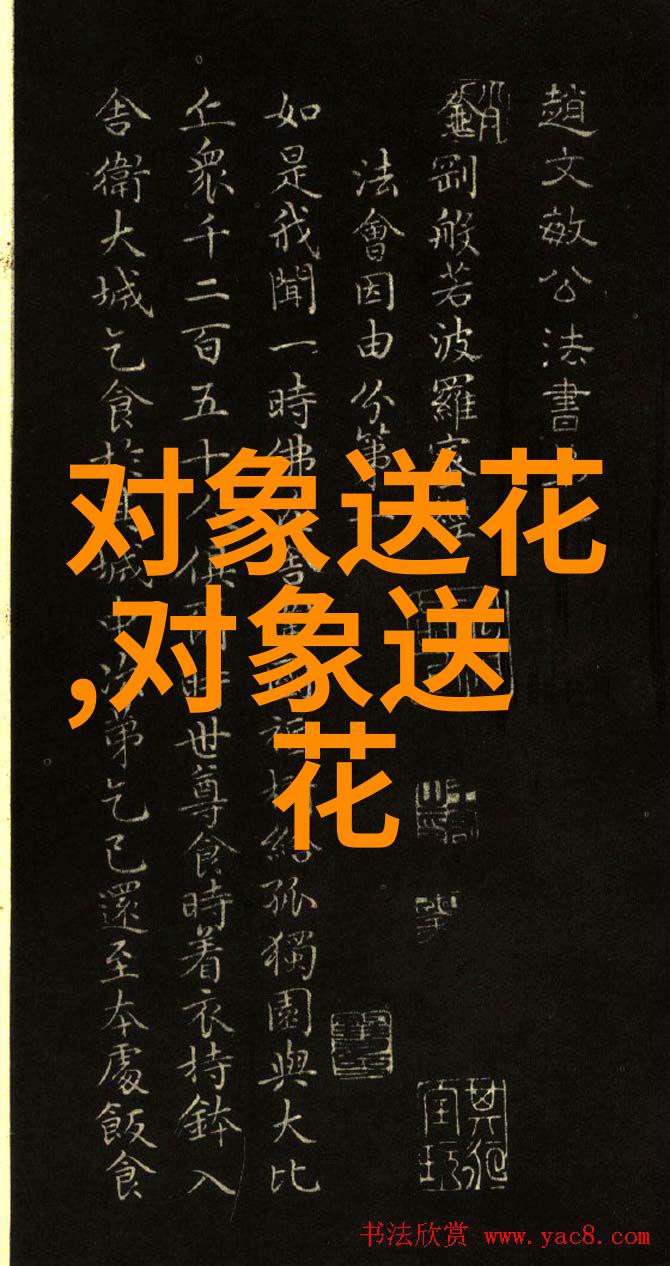 趙文敏公法書
剛般若波羅
法會因由分第
如是我聞一時佛
給孤獨園與大比
丘眾千二百五十
世尊食時着衣持鉢入
舍衛大城乞食
城中次第乞已還至本處飯食
对象送花
,对象送
花
书法欣赏 www.yac8.com